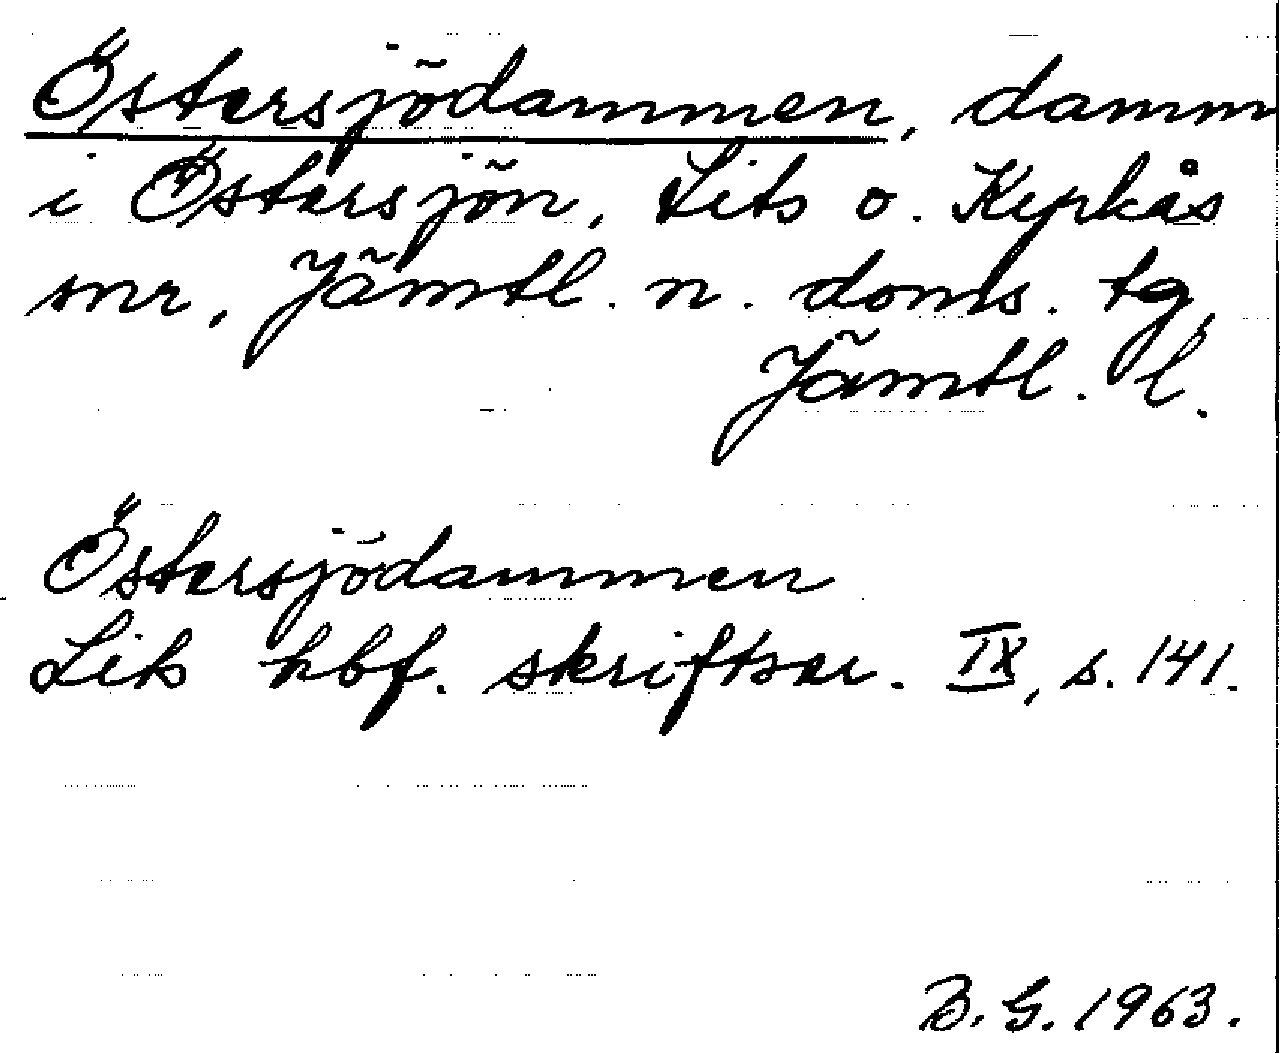 Östersjödammen, damm
i Östersjön, Lits o. Kyrkås
snr, Jämtl. n. doms. tg,
Jämtl. l.
Östersjödammen
Lits hbf. skriftser. IX, s. 141.
B. G. 1963.